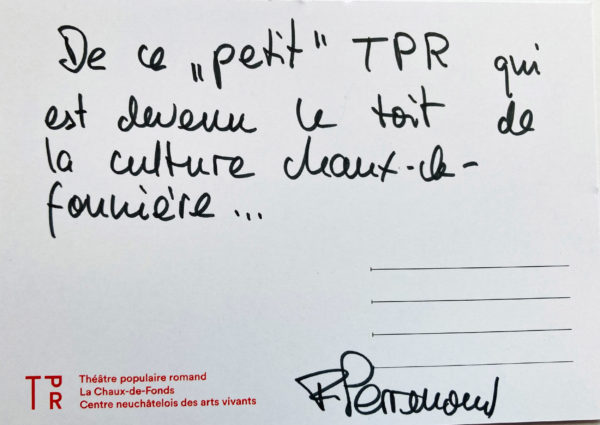 De ce „petit" TPR qui
est devenu le toit de
la culture chaux-de-
fonnière...
TPR
Théâtre populaire romand
La Chaux-de-Fonds
Centre neuchâtelois des arts vivants
R Perrenoud